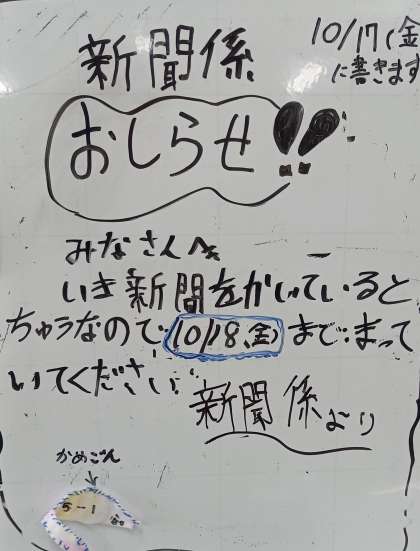 新聞係
10/17(金
に書きます
おしらせ!!
みなさんへ
いき新聞をかいていると
ちゅうなので10/18(金)まで、まって
いてください
新聞係より
かめごん
5-1